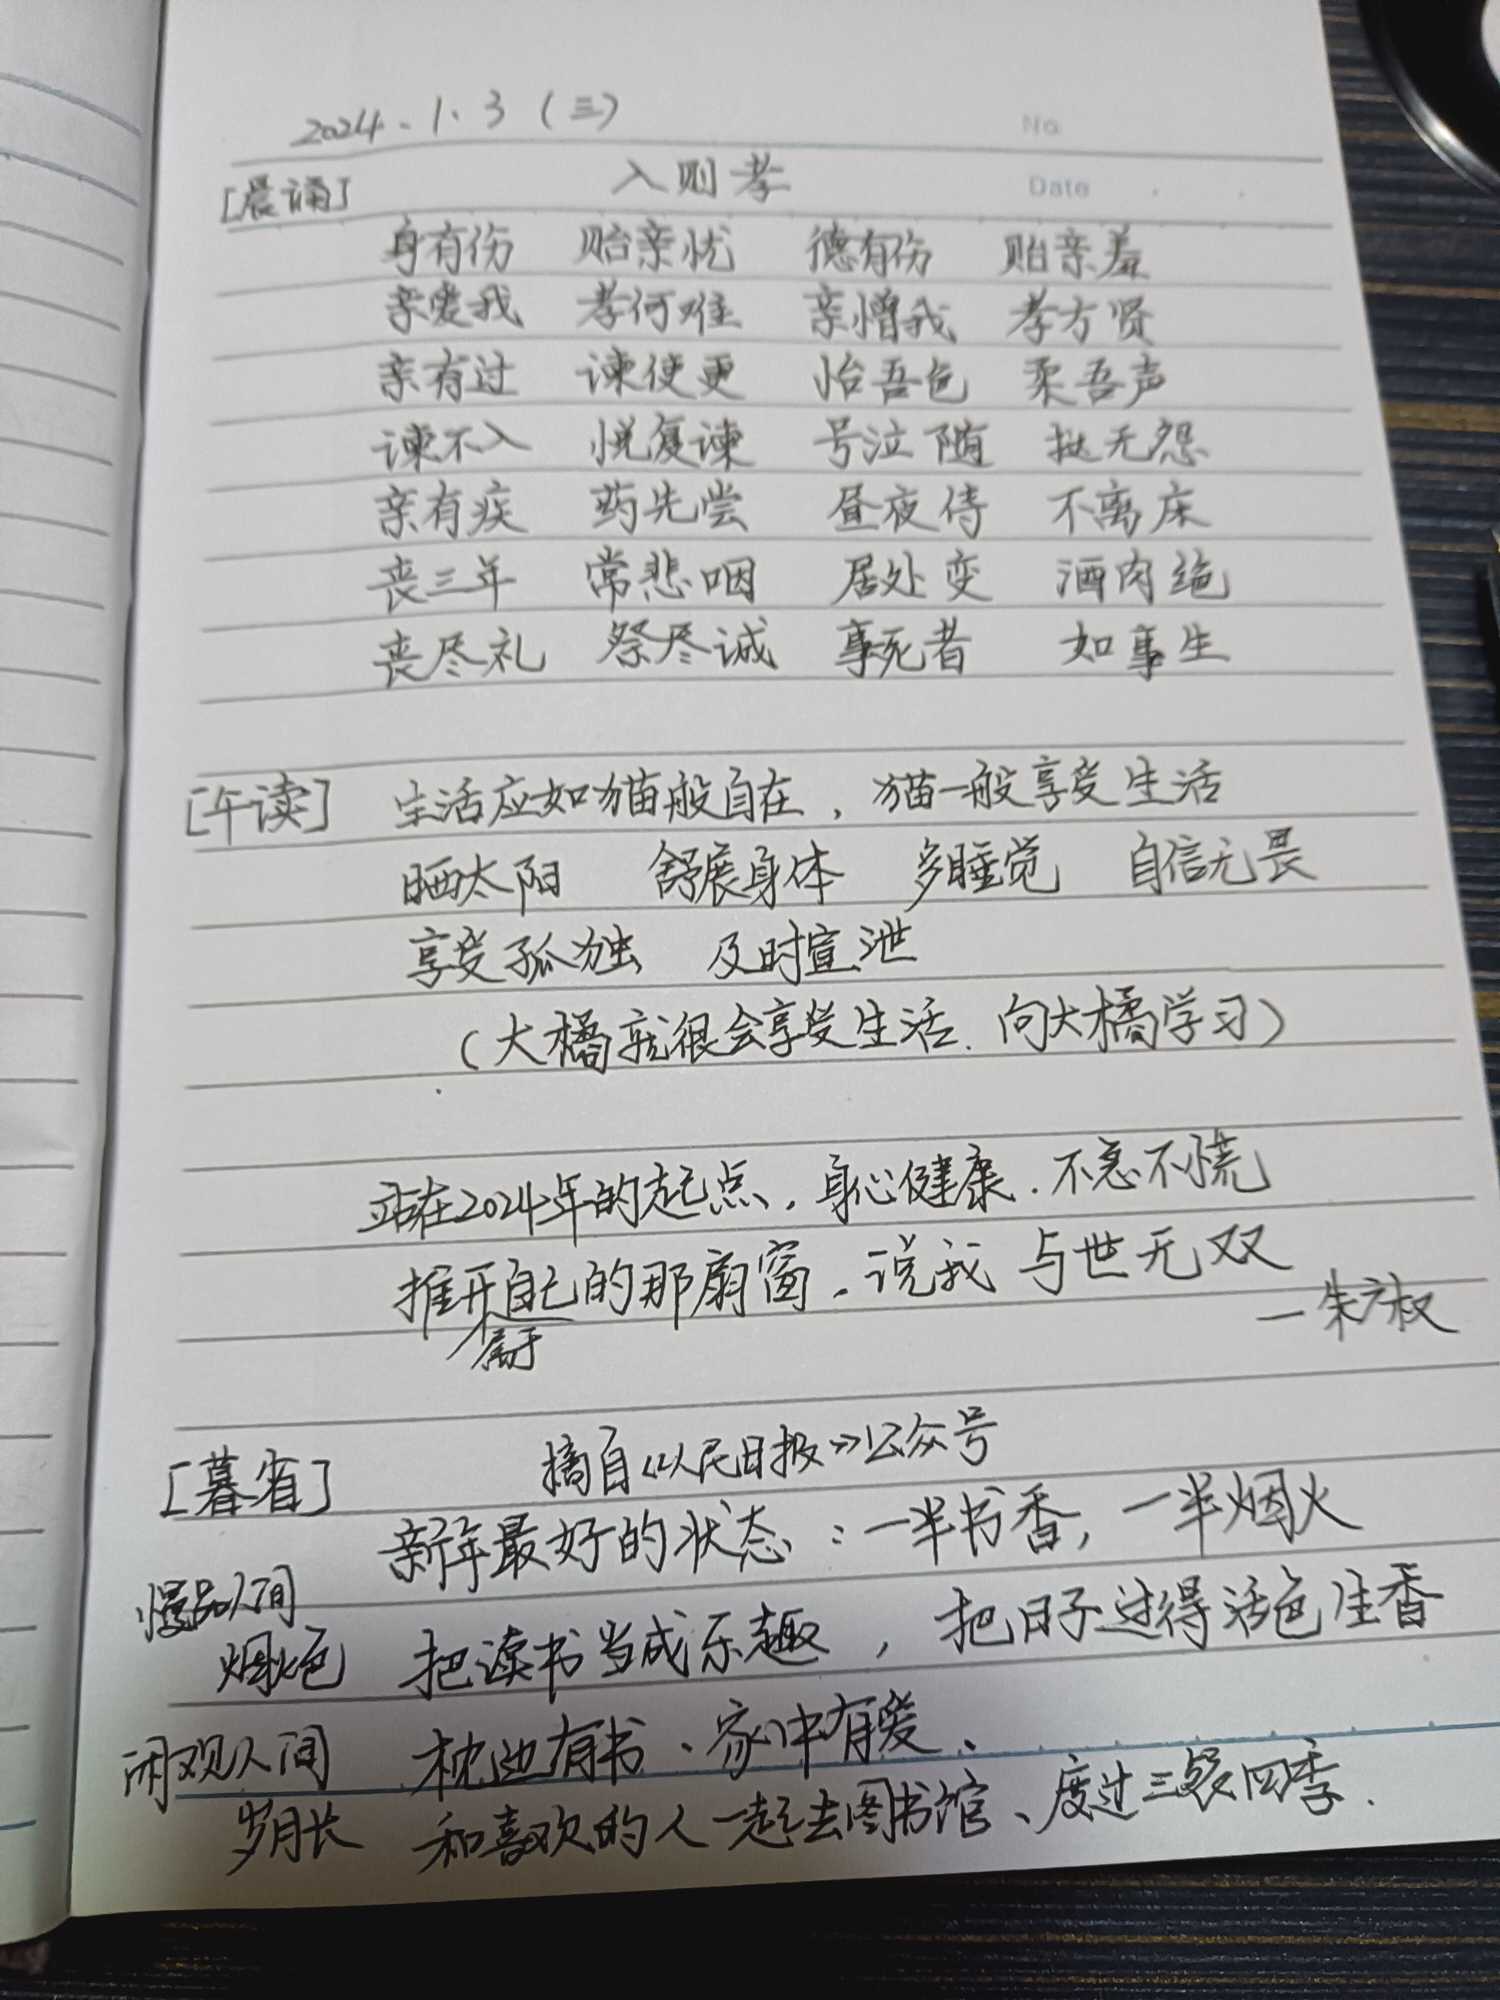 2024.1.3(三)
No
[晨诵] 入则孝
Date
身有伤 贻亲忧 德有伤 贻亲羞
亲爱我 孝何难 亲憎我 孝方贤
亲有过 谏使更 怡吾色 柔吾声
谏不入 悦复谏 号泣随 挞无怨
亲有疾 药先尝 昼夜侍 不离床
丧三年 常悲咽 居处变 酒肉绝
丧尽礼 祭尽诚 事死者 如事生
[午读] 生活应如猫般自在,猫一般享受生活
晒太阳 舒展身体 多睡觉 自信无畏
享受孤独 及时宣泄
(大橘就很会享受生活.向大橘学习)
站在2024年的起点,身心健康.不急不慌
推开自己的那扇窗.说我 与世无双
属于
—朱广权
[暮省] 摘自《人民日报》公众号
新年最好的状态:一半书香,一半烟火
慢品人间
烟火色 把读书当成乐趣,把日子过得活色生香
闲观人间 枕边有书、家中有爱、
岁月长 和喜欢的人一起去图书馆、度过三餐四季.